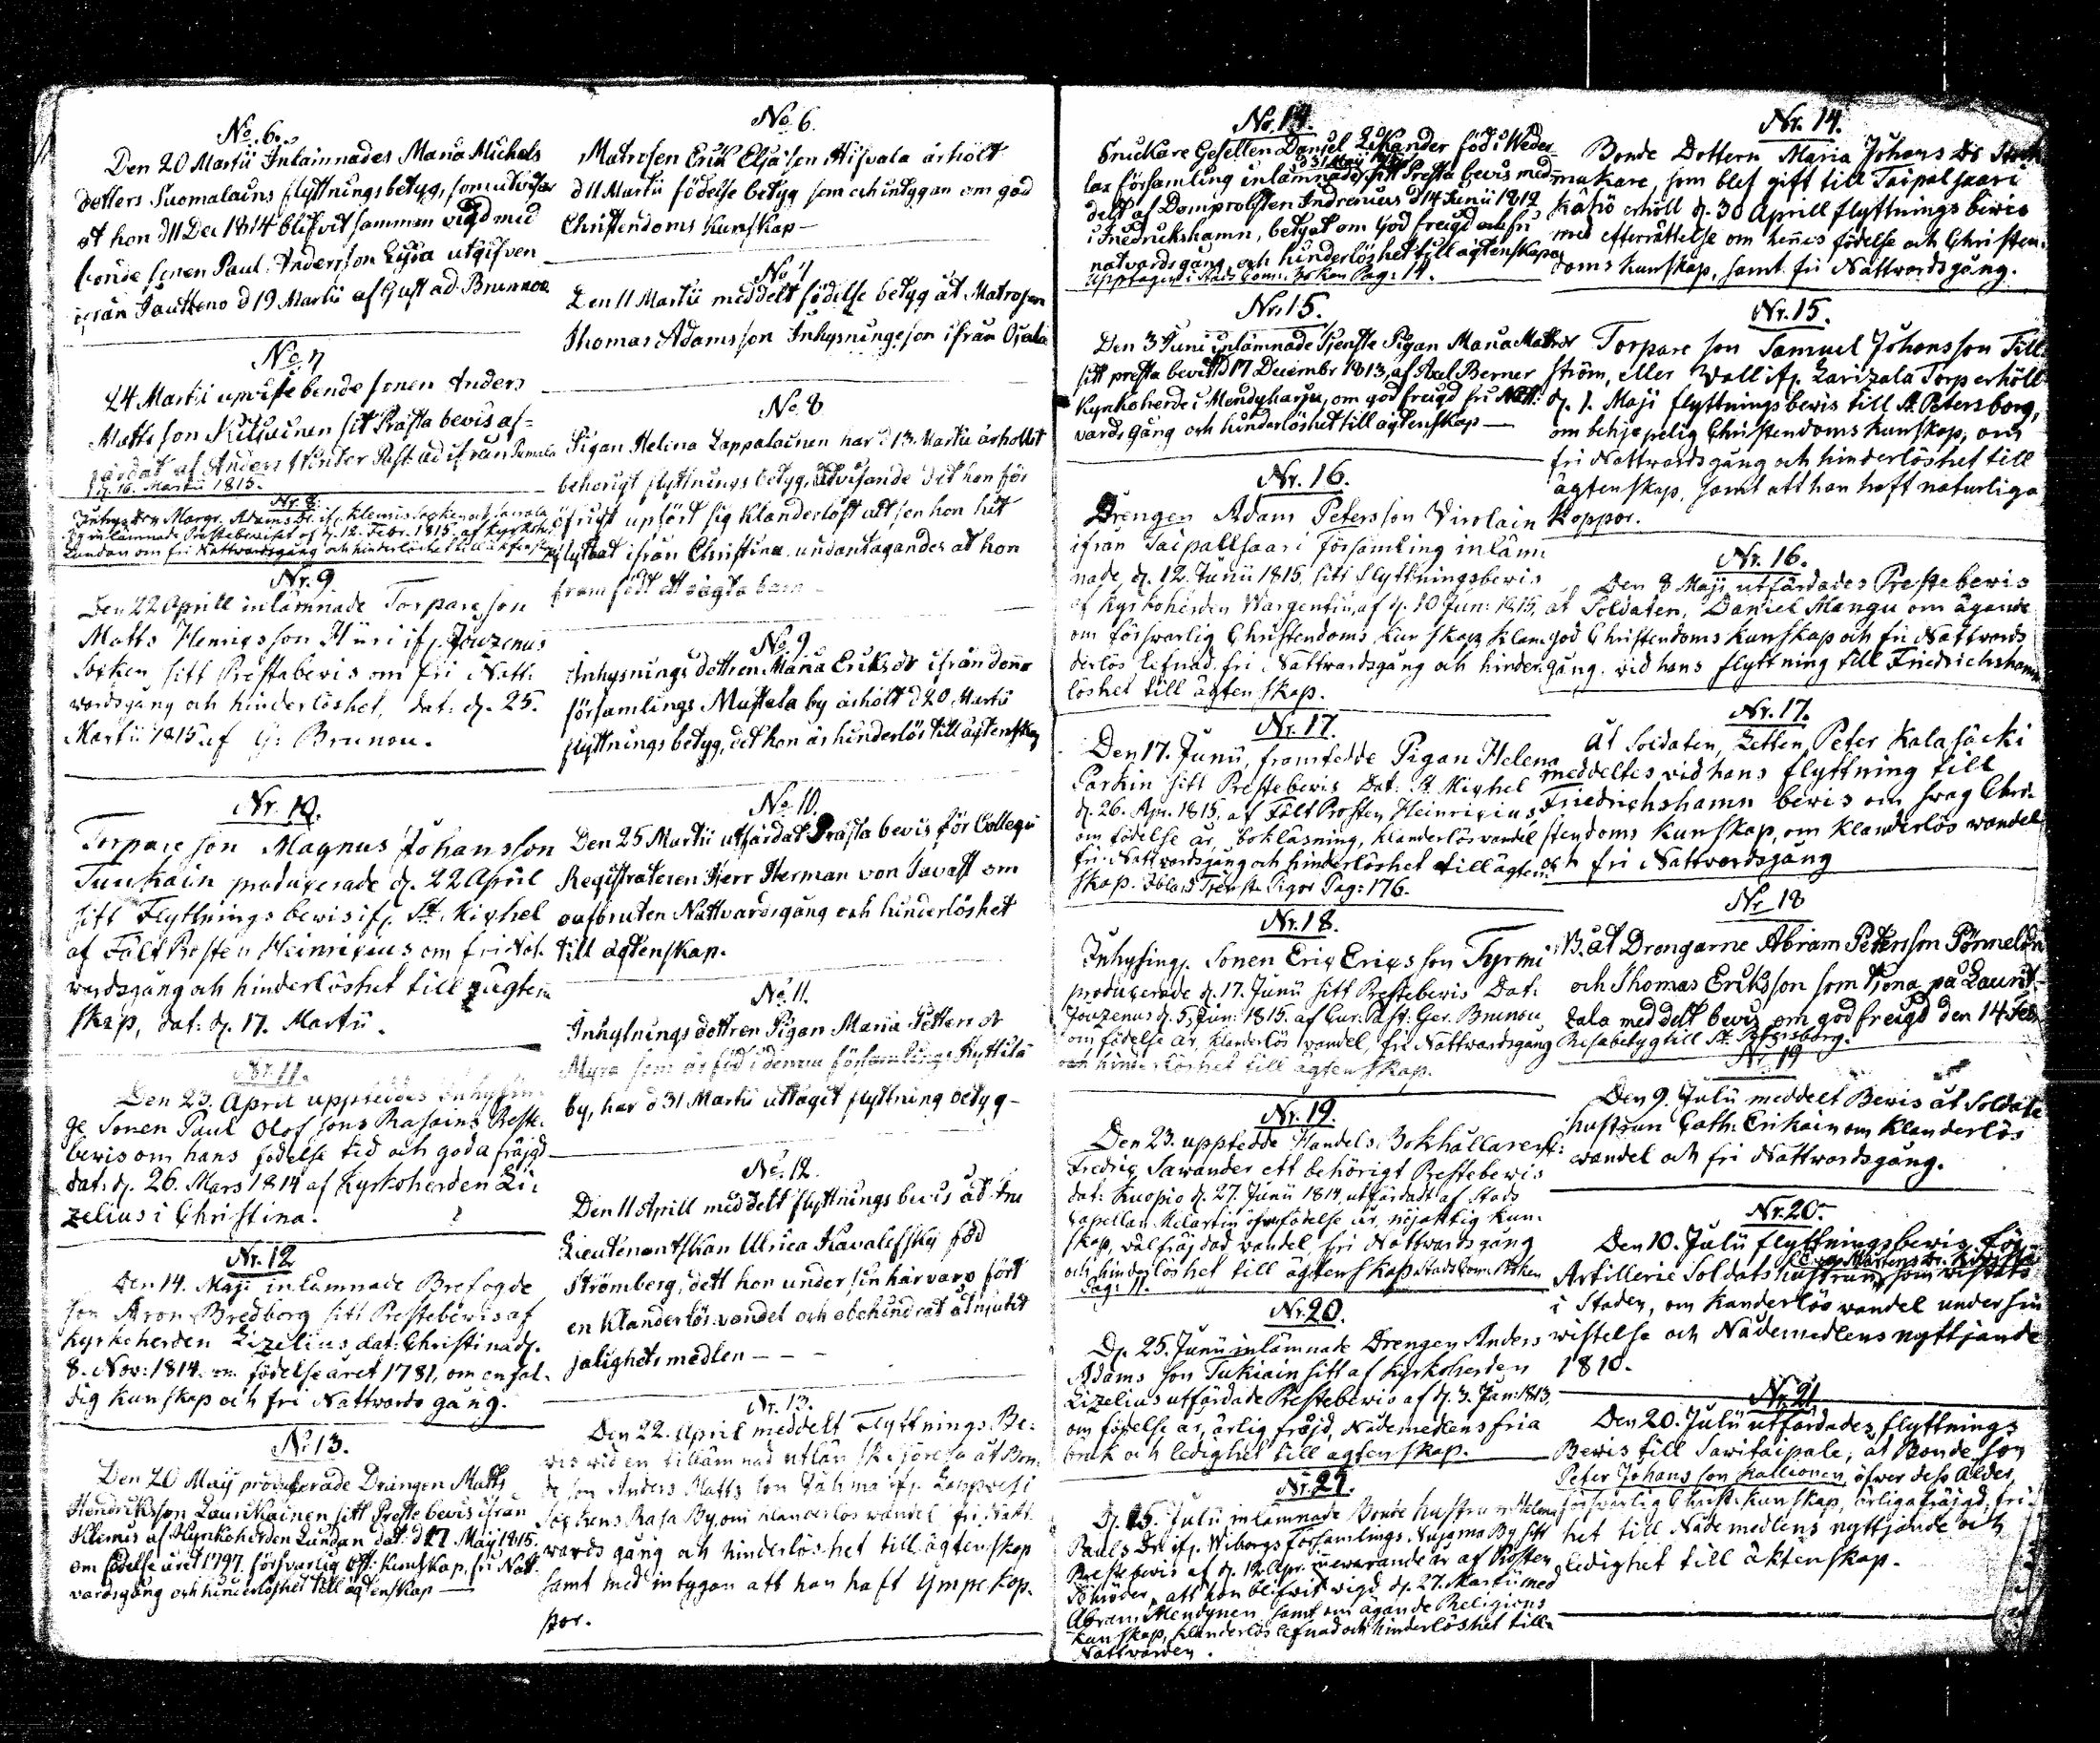 No. 6.
Den 20 Martii Inlämnades Maria Michels
dotters Suomalains flyttningsbetyg, som utvisar
at hon d 11 Dec 1814 blifvit samman vigd med
bonde sonen Paul Andersson Eyra utgifven
ifrån Jautteno d 19 Martii af Gust ad. Brunnou
No. 7
24 Martii upviste bonde sonen Anders
Matts son Kiljuinen sit Prästa bevis af=
färdat af Anders Winter Past: ad ifrån Pumala
d. 16. Martii 1815.
Nr. 8.
Inhys dn Margr. Adams Dr. if. Klemis Soken och
inlämnade Prestebeviset af d. 12. Febr. 1815 af Kyrkoh:
Lundan om fri Nattvardsgång och hinderlöshet till äktenskap
Nr. 9
Den 22 Aprill inlämnade Torpare son
Matts Henrigsson Hiiri if. Jouzenus
Soken sitt Prestebevis om fri Natt:
vardsgång och hinderlöshet, dat: d. 25.
Martii 1815 af G: Brunou.
Nr. 10.
Torpare son Magnus Johansson
Tuukain producerade d. 22 April
sitt Flyttnings bevis if. St. Michel
af Fält Prosten Heinricius om fri Nat.
vardsgång och hinderlöshet till ägten
skap, dat: d. 17. Martii.
Nr. 11.
Den 23. April uppteddes Inhysin
ge Sonen Paul Olof sons Rasains Preste.
bevis om hans födelse tid och goda fräjd
dat: d. 26. Mars 1814 af Kyrkoherden Li:
zelius i Christina.
Nr. 12
Den 14. Maji inlämnade Brefogde
son Aron Bredborg sitt Prestebevis af
Kyrkoherden Lizelius dat: Christina d.
8. Nov: 1814. om födelse året 1781, om enfal.
dig kunskap och fri Nattvards gång.
N. 13.
Den 20 Maij producerade Drängen Matts
Hendriksson Laurikainen sitt Preste bevis ifrån
Klemis af Kyrkoherden Lundan dat: d 17 Maij 1815.
om födelse året 1797, försvarlig Chr: kunskap, fri Natt:
vardsgång och hinderlöshet till ägtenskap
No. 6.
Matrosen Erik Elsason Hisvala ärhölt
d 11 Martii födelse betyg som och intygan om god
Christendoms Kunskap —
No. 7
Den 11 Martii meddelt födelse betyg åt Matrosen
Thomas Adamsson Inhysningeson ifrån Ojala
No. 8
Pigan Helina Lappalainen har d 13. Martii ärhollit
behörigt flyttnings betyg, utvisande det hon för
öfrigt upfört sig klanderlöst alt sen hon hit
flyttat ifrån Christina, undantagandes at hon
fram födt ett oägta barn
No. 9
Inhysnings dottren Maria Eriks dr ifrån denna
församlings Mustala by ärhölt d 20 Martii
flyttnings betyg, det hon är hinderlös till ägtenskap
No. 10.
Den 25 Martii utfärdat Prästa bevis för Collegii
Registratoren Herr Herman von Tavast om
oafbruten Nattvardsgång och hinderlöshet
till ägtenskap.
No. 11.
Inhysnings dottren Pigan Maria Petters dr
Myra som är född i denna församlings Hyttilä
by, har d 31 Martii uttagit flyttning betyg —
No. 12.
Den 11 Aprill meddelt flyttnings bevis åt Fru
Lieutenantskan Ulrica Kavalefsky född
Strömberg, dett hon under sin härvaro fört
en klanderlös vandel och obehindrat åtnjutit
salighets medlen — — —
Nr. 13.
Den 22. April meddelt Flyttnings Be:
vis vid en tillämnad utländsk sjöresa åt Bon
de son Anders Matts son Juhma if. Lappvesi
Sokens Rasa By, om klanderlös vandel, fri Natt
vards gång och hinderlöshet till ägtenskap
samt med intygan att han haft Ympe kop.
por.
Nr. 14.
Snickare Gesellen Daniel Zekander föd i Weder=
lax församling inlämnade d 31 Maij 1815 sitt Presta bevis med=
delt af Domprobsten Indrenius d 14 Junii 1812
i Fredrikshamn, betygat om God freigd och fri
natvards gång och hinderlöshet till ägtenskap
Upptagen i Stads Com: Boken Pag: 14.
Nr. 15.
Den 3 Juni inlämnade Tjenste Pigan Maria Matts dr
sitt presta bevis d 17 Decembr 1813, af Axel Berner
Kyrkoherde i Mendyharju, om god freigd fri Natt:
vards gång och hinderlöshet till ägtenskap —
Nr. 16.
Drengen Adam Petersson Virolain
ifrån Taipallsaari Församling inläm
nade, d. 12. Junii 1815, sitt flyttningsbevis
af Kyrkoherden Wargentin, af d. 10 Jun: 1815,
om försvarlig Christendoms kunskap klan:
derlös lefnad, fri Nattvardsgång och hinder:
löshet till ägtenskap.
Nr. 17.
Den 17. Junii, framtedde Pigan Helena
Parkin sitt Prestebevis Dat: St. Michel
d. 26. Apr. 1815, af Fält Prosten Heinricius,
om födelse år, bokläsning, klanderlös vandel
fri Nattvardsgång och hinderlöshet till ägten:
skap. Ibland Tjenste Pigor Pag: 176.
Nr. 18.
Inhysing. Sonen Eric Ericsson Tyrmi
producerade d. 17. Junii sitt Prestebevis Dat:
Jouzenus d. 5, Jun: 1815. af Cur. Past. Ger. Brunou
om födelse år, klanderlös vandel, fri Nattvardsgång
och hinderlöshet till ägtenskap.
Nr. 19.
Den 23. upptedde Handels Bokhållaren
Fredric Savander ett behörigt Prestebevis
dat: Kuopio d. 27. Junii 1814, utfärdadt af Stads
Capellan Milartin öfver födelse år, nöjaktig kun:
skap, välfräjdad vandel, fri Nattvards gång
och hinderlöshet till ägtenskap. Stads Com. Boken
Pag: 11.
Nr. 20.
D. 25. Junii inlämnade Drengen Anders
Adams son Tukiain sitt af Kyrkoherden
Lizelius utfärdade Prestebevis af d. 3. Jan: 1813,
om födelse år, ärlig fräjd, Nådemedlens fria
bruk och ledighet till ägtenskap.
Nr. 21.
D. 15. Julii inlämnade Bonde hustrun Helena
Pauls Dr. if. Wiborgs Församlings, By sitt
Prestebevis af d. 12. Apr. innevarande år af Prosten
Schröder, att hon blifvit vigd d. 27. Martii med
Abram Mendynen samt om ägande Religions
kunskap, klanderlös lefnad och hinderlöshet till
Nattvarden.
Nr. 14.
Bonde Dottern Maria Johans Dr
makare, som blef gift till Taipalsaari
Kähö erhöll d. 30 Aprill flyttnings bevis
med efterrättelse om hennes födelse och Christen:
doms kunskap, samt fri Nattvardsgång.
Nr. 15.
Torpare son Samuel Johansson Till
ström, eller Vall if. Larizala Torp erhöll
d. 1. Maji flyttnings bevis till St. Petersborg,
om behjepelig Christendoms kunskap, om
fri Nattvardsgång och hinderlöshet till
ägtenskap, samt att han haft naturliga
koppor.
Nr. 16.
Den 8 Maji utfärdades Prestebevis
åt Soldaten, Daniel Mangu om ägande
god Christendoms kunskap och fri Nattvards
gång vid hans flyttning till Friedrichshamn
Nr. 17.
Åt Soldaten, Letten, Peter Kalasäcki
meddeltes vid hans flyttning till
Friedrichshamn bevis om svag Chri:
stendoms kunskap, om klanderlös vandel
och fri Nattvardsgång
Nr 18
åt Drangarne Abram Petersson
och Thomas Eriksson som tjena på Laurit=
zala meddelt bevis om god freigd den 14 Feb
Resebetyg till St. Petersborg.
Nr 19
Den 9. Julii meddelt Bevis åt Soldats
hustrun Cath: Erikain om klanderlös
vandel och fri Nattvardsgång.
Nr. 20.
Den 10. Julii flyttningsbevis för
Artillerie Soldats hustrun som vistats
i Staden, om klanderlös vandel under sin
vistelse och Nådemedlens nyttjande
1810.
Nr. 21
Den 20. Julii utfördades flyttnings
Bevis till Savitaipale, åt Bonde son
Peter Johans son Kallionen, öfver dess ålder,
försvarlig Christ: kunskap, ärliga fräjd, fri=
het till Nådemedlens nyttjande och
ledighet till äktenskap.